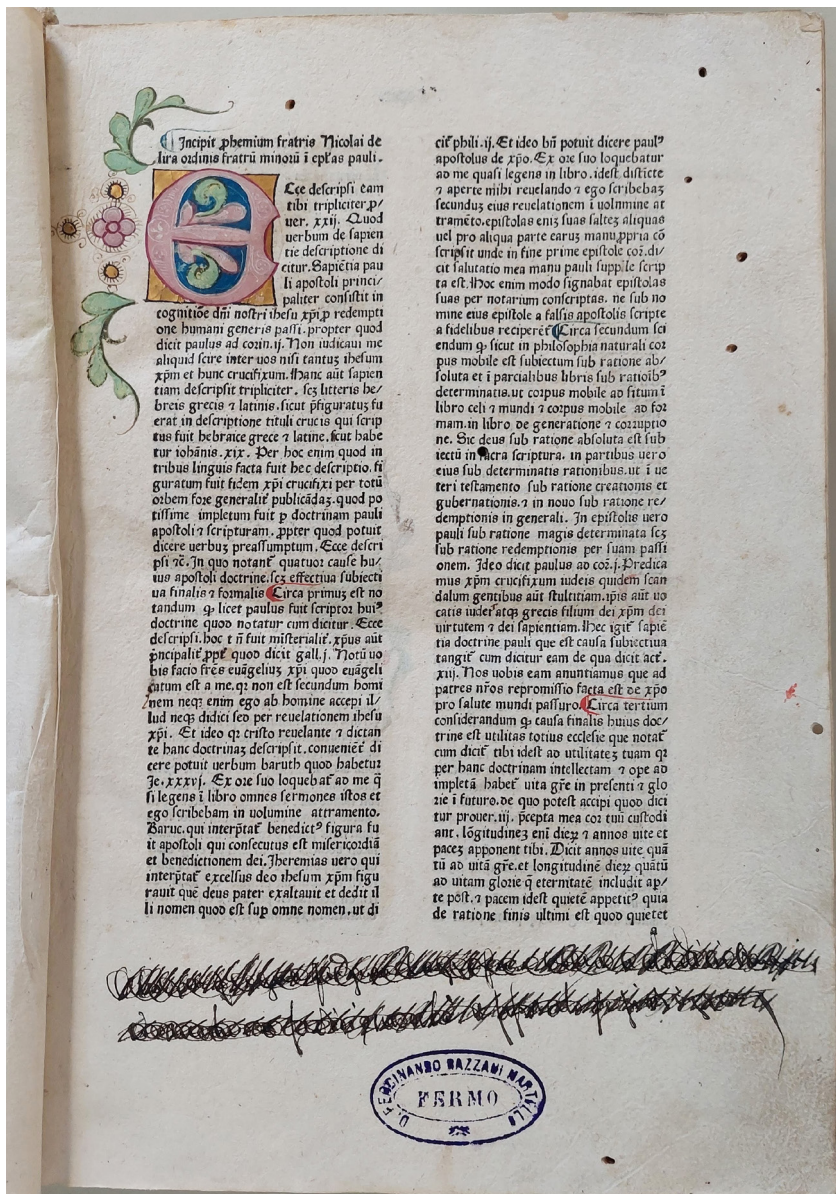 Incipit ꝓhemium fratris Nicolai de
lira ordinis fratrū minorū ī epl̄as pauli.
Ecce descripsi eam
tibi tripliciter ꝓ/
uer. xxij. Quod
uerbum de sapien
tie descriptione di
citur. Sapiētia pau
li apostoli princi/
paliter consistit in
cognitiōe dn̄i nostri ihesu xp̄i ꝓ redempti
one humani generis passi. propter quod
dicit paulus ad corin. ij. Non iudicaui me
aliquid scire inter uos nisi tantuꝫ ihesum
xp̄m et hunc crucifixum. Hanc aūt sapien
tiam descripsit tripliciter. scꝫ litteris he/
breis grecis ⁊ latinis. sicut p̄figuratuꝫ fu
erat in descriptione tituli crucis qui scrip
tus fuit hebraice grece ⁊ latine. sicut habe
tur iohānis. xix. Per hoc enim quod in
tribus linguis facta fuit hec descriptio. fi
guratum fuit fidem xp̄i crucifixi per totū
orbem fore generalit̄ publicādaꝫ. quod po
tissime impletum fuit ꝑ doctrinam pauli
apostoli ⁊ scripturam. ꝓpter quod potuit
dicere uerbuꝫ preassumptum. Ecce descri
psi ⁊c̄. In quo notant̄ quatuor cause hu/
ius apostoli doctrine. scꝫ effectiua subiecti
ua finalis ⁊ formalis Circa primuꝫ est no
tandum ꝙ licet paulus fuit scriptor huiꝰ
doctrine quod notatur cum dicitur. Ecce
descripsi. hoc t̄n fuit mīsterialit̄. xp̄us aūt
pͥncipalit̄ ꝓpt̄ quod dicit gall. j. Notū uo
bis facio fr̄es euāgeliuꝫ xp̄i quod euāgeli
catum est a me. qꝛ non est secundum homi
nem neqꝫ enim ego ab homine accepi il/
lud neqꝫ didici sed per reuelationem ihesu
xp̄i. Et ideo qꝛ cristo reuelante ⁊ dictan
te hanc doctrinaꝫ descripsit. conueniēt̄ di
cere potuit uerbum baruth quod habetur
Je. xxxvj. Ex ore suo loquebat̄ ad me q̄
si legens ī libro omnes sermones istos et
ego scribebam in uolumine attramento.
Baruc. qui interp̄tat̄ benedictꝰ figura fu
it apostoli qui consecutus est misericordiā
et benedictionem dei. Jheremias uero qui
interp̄tat̄ excelsus deo ihesum xp̄m figu
rauit quē deus pater exaltauit et dedit il
li nomen quod est suꝑ omne nomen. ut di
cit̄ phili. ij. Et ideo bn̄ potuit dicere paulꝰ
apostolus de xp̄o. Ex ore suo loquebatur
ad me quasi legens in libro. idest distīcte
⁊ aperte mihi reuelando ⁊ ego scribebaꝫ
secunduꝫ eius reuelationem ī uolnmine at
tramēto. epistolas eniꝫ suas salteꝫ aliquas
uel pro aliqua parte earuꝫ manu ꝓpria cō
scripsit unde in fine prime epistole coꝝ. di/
cit salutatio mea manu pauli supple scrip
ta est. Hoc enim modo signabat epistolas
suas per notarium conscriptas. ne sub no
mine eius epistole a falsis apostolis scripte
a fidelibus reciperēt̄ Circa secundum sci
endum ꝙ sicut in philosophia naturali cor
pus mobile est subiectum sub ratione ab/
soluta et ī parcialibus libris sub ratioībꝰ
determinatis. ut corpus mobile ad situm ī
libro celi ⁊ mundi ⁊ corpus mobile ad for
mam. in libro de generatione ⁊ corruptio
ne. Sic deus sub ratione absoluta est sub
iectū in sacra scriptura. in partibus uero
eius sub determinatis rationibus. ut ī ue
teri testamento sub ratione creationis et
gubernationis. ⁊ in nouo sub ratione re/
demptionis in generali. In epistolis uero
pauli sub ratione magis determinata scꝫ
sub ratione redemptionis per suam passi
onem. Ideo dicit paulus ad coꝝ. j. Predica
mus xp̄m crucifixum iudeis quidem scan
dalum gentibus aūt stultitiam. ip̄is aūt uo
catis iudeis atqꝫ grecis filium dei xp̄m dei
uirtutem ⁊ dei sapientiam. Hec igit̄ sapiē
tia doctrine pauli que est causa subiectiua
tangit̄ cum dicitur eam de qua dicit act̄.
xiij. Nos uobis eam anuntiamus que ad
patres nr̄os repromissio facta est de xp̄o
pro salute mundi passuro. Circa tertium
considerandum ꝙ causa finalis huius doc/
trine est utilitas totius ecclesie que notat̄
cum dicit̄ tibi idest ad utilitateꝫ tuam qꝛ
per hanc doctrinam intellectam ⁊ ope ad
impletā habet̄ uita gr̄e in presenti ⁊ glo
rie ī futuro. de quo potest accipi quod dici
tur prouer. iij. p̄cepta mea cor tuū custodi
ant. lōgitudineꝫ enī dieꝝ ⁊ annos uite et
paceꝫ apponent tibi. Dicit annos uite quā
tū ad uitā gr̄e. et longitudinē dieꝝ quātū
ad uitam glorie q̄ eternitatē includit aꝑ/
te post. ⁊ pacem idest quietē appetitꝰ quia
de ratione finis ultimi est quod quietet
D. FERDINANDO BAZZANI MARTELLI
FERMO